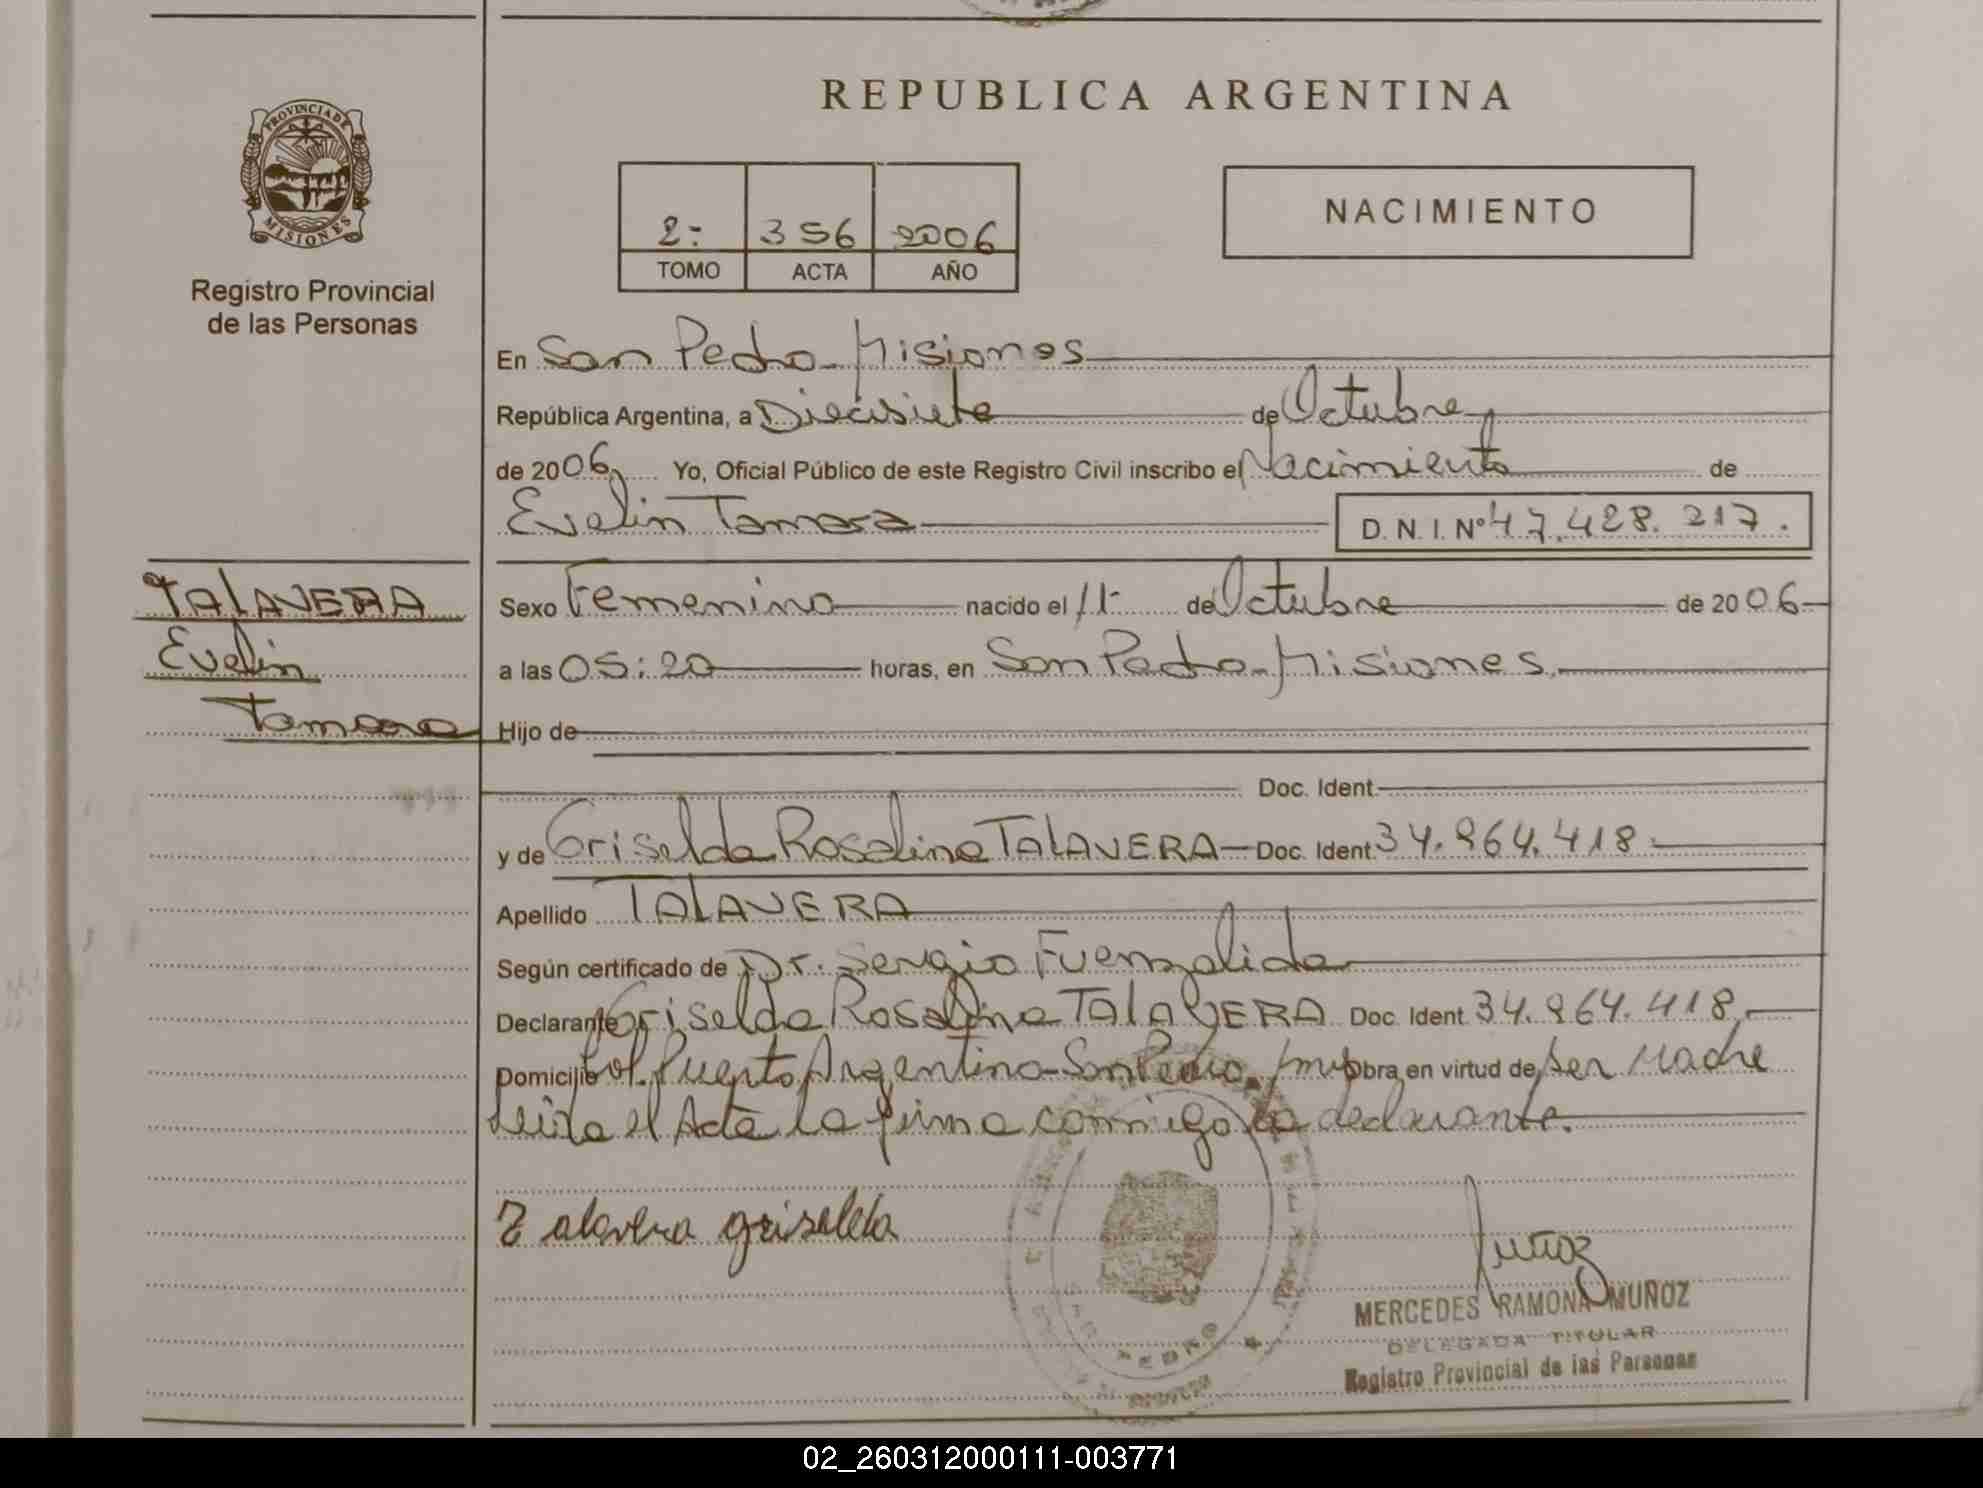 REPUBLICA ARGENTINA
PROVINCIA DE
MISIONES
Registro Provincial
de las Personas
NACIMIENTO
2- 356 2006
TOMO ACTA AÑO
En San Pedro - Misiones
República Argentina, a Diecisiete de Octubre
de 2006 Yo, Oficial Público de este Registro Civil inscribo el Nacimiento de
Evelin Tamara D.N.I. Nº 47.428.217.
TALAVERA
Evelin
Tamara
Sexo Femenino nacido el 11- de Octubre de 2006
a las 05:20 horas, en San Pedro - Misiones.
Hijo de
Doc. Ident.
y de Griselda Rosalina TALAVERA Doc. Ident. 34.964.418.
Apellido TALAVERA
Según certificado de Dr. Sergio Fuenzalida
Declarante Griselda Rosalina TALAVERA Doc. Ident. 34.964.418.
Domicilio Col. Puerto Argentino - San Pedro obra en virtud de ser Madre
Leida el Acta la firma conmigo la declarante.
Talavera griselda
PEDRO
MISIONES
Muñoz
MERCEDES RAMONA MUÑOZ
DELEGADA TITULAR
Registro Provincial de las Personas
02_260312000111-003771